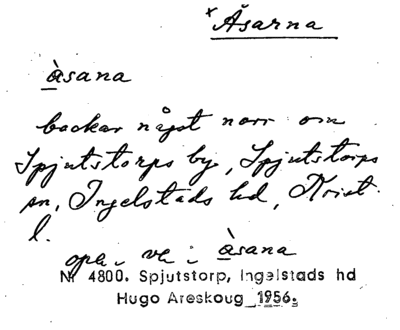 × Åsarna
àsana
backar någst norr om
Spjutstorps by, Spjutstorps
sn, Ingelstads hd, Krist.
l.
opa i ve i àsana
Nr 4800. Spjutstorp, Ingelstads hd
Hugo Areskoug 1956.